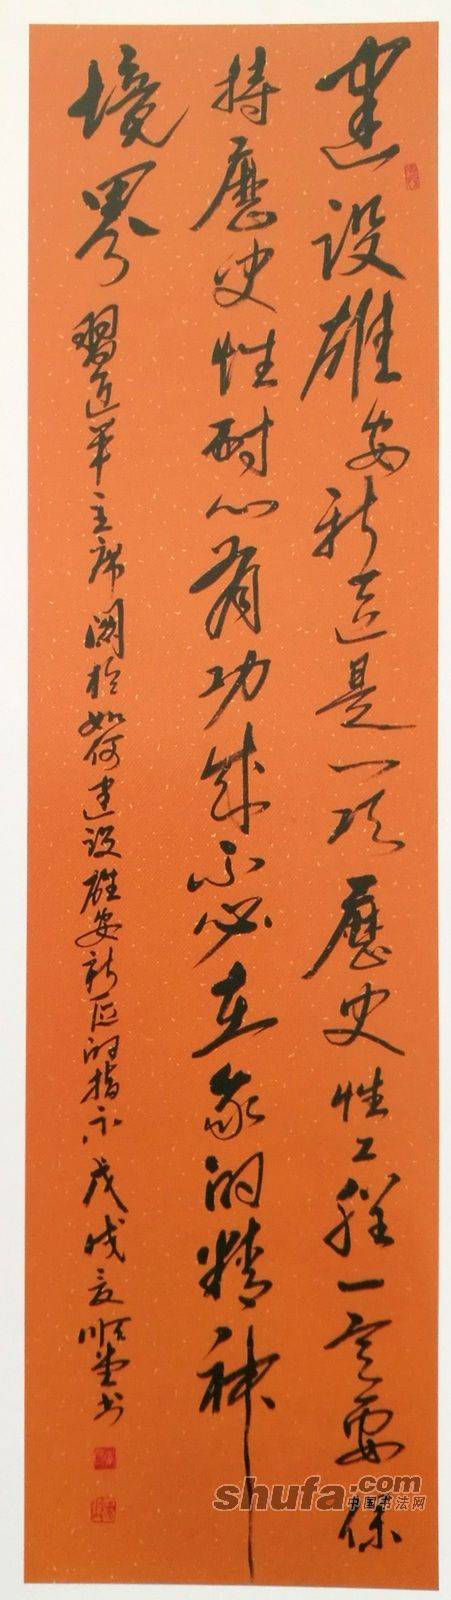 建设雄安新区是一项歷史性工程一定要保
持歷史性耐心有功成不必在我的精神
境界 習近平主席關於如何建设雄安新区的指示戊戌夏顺书
shufa.com
中国书法网